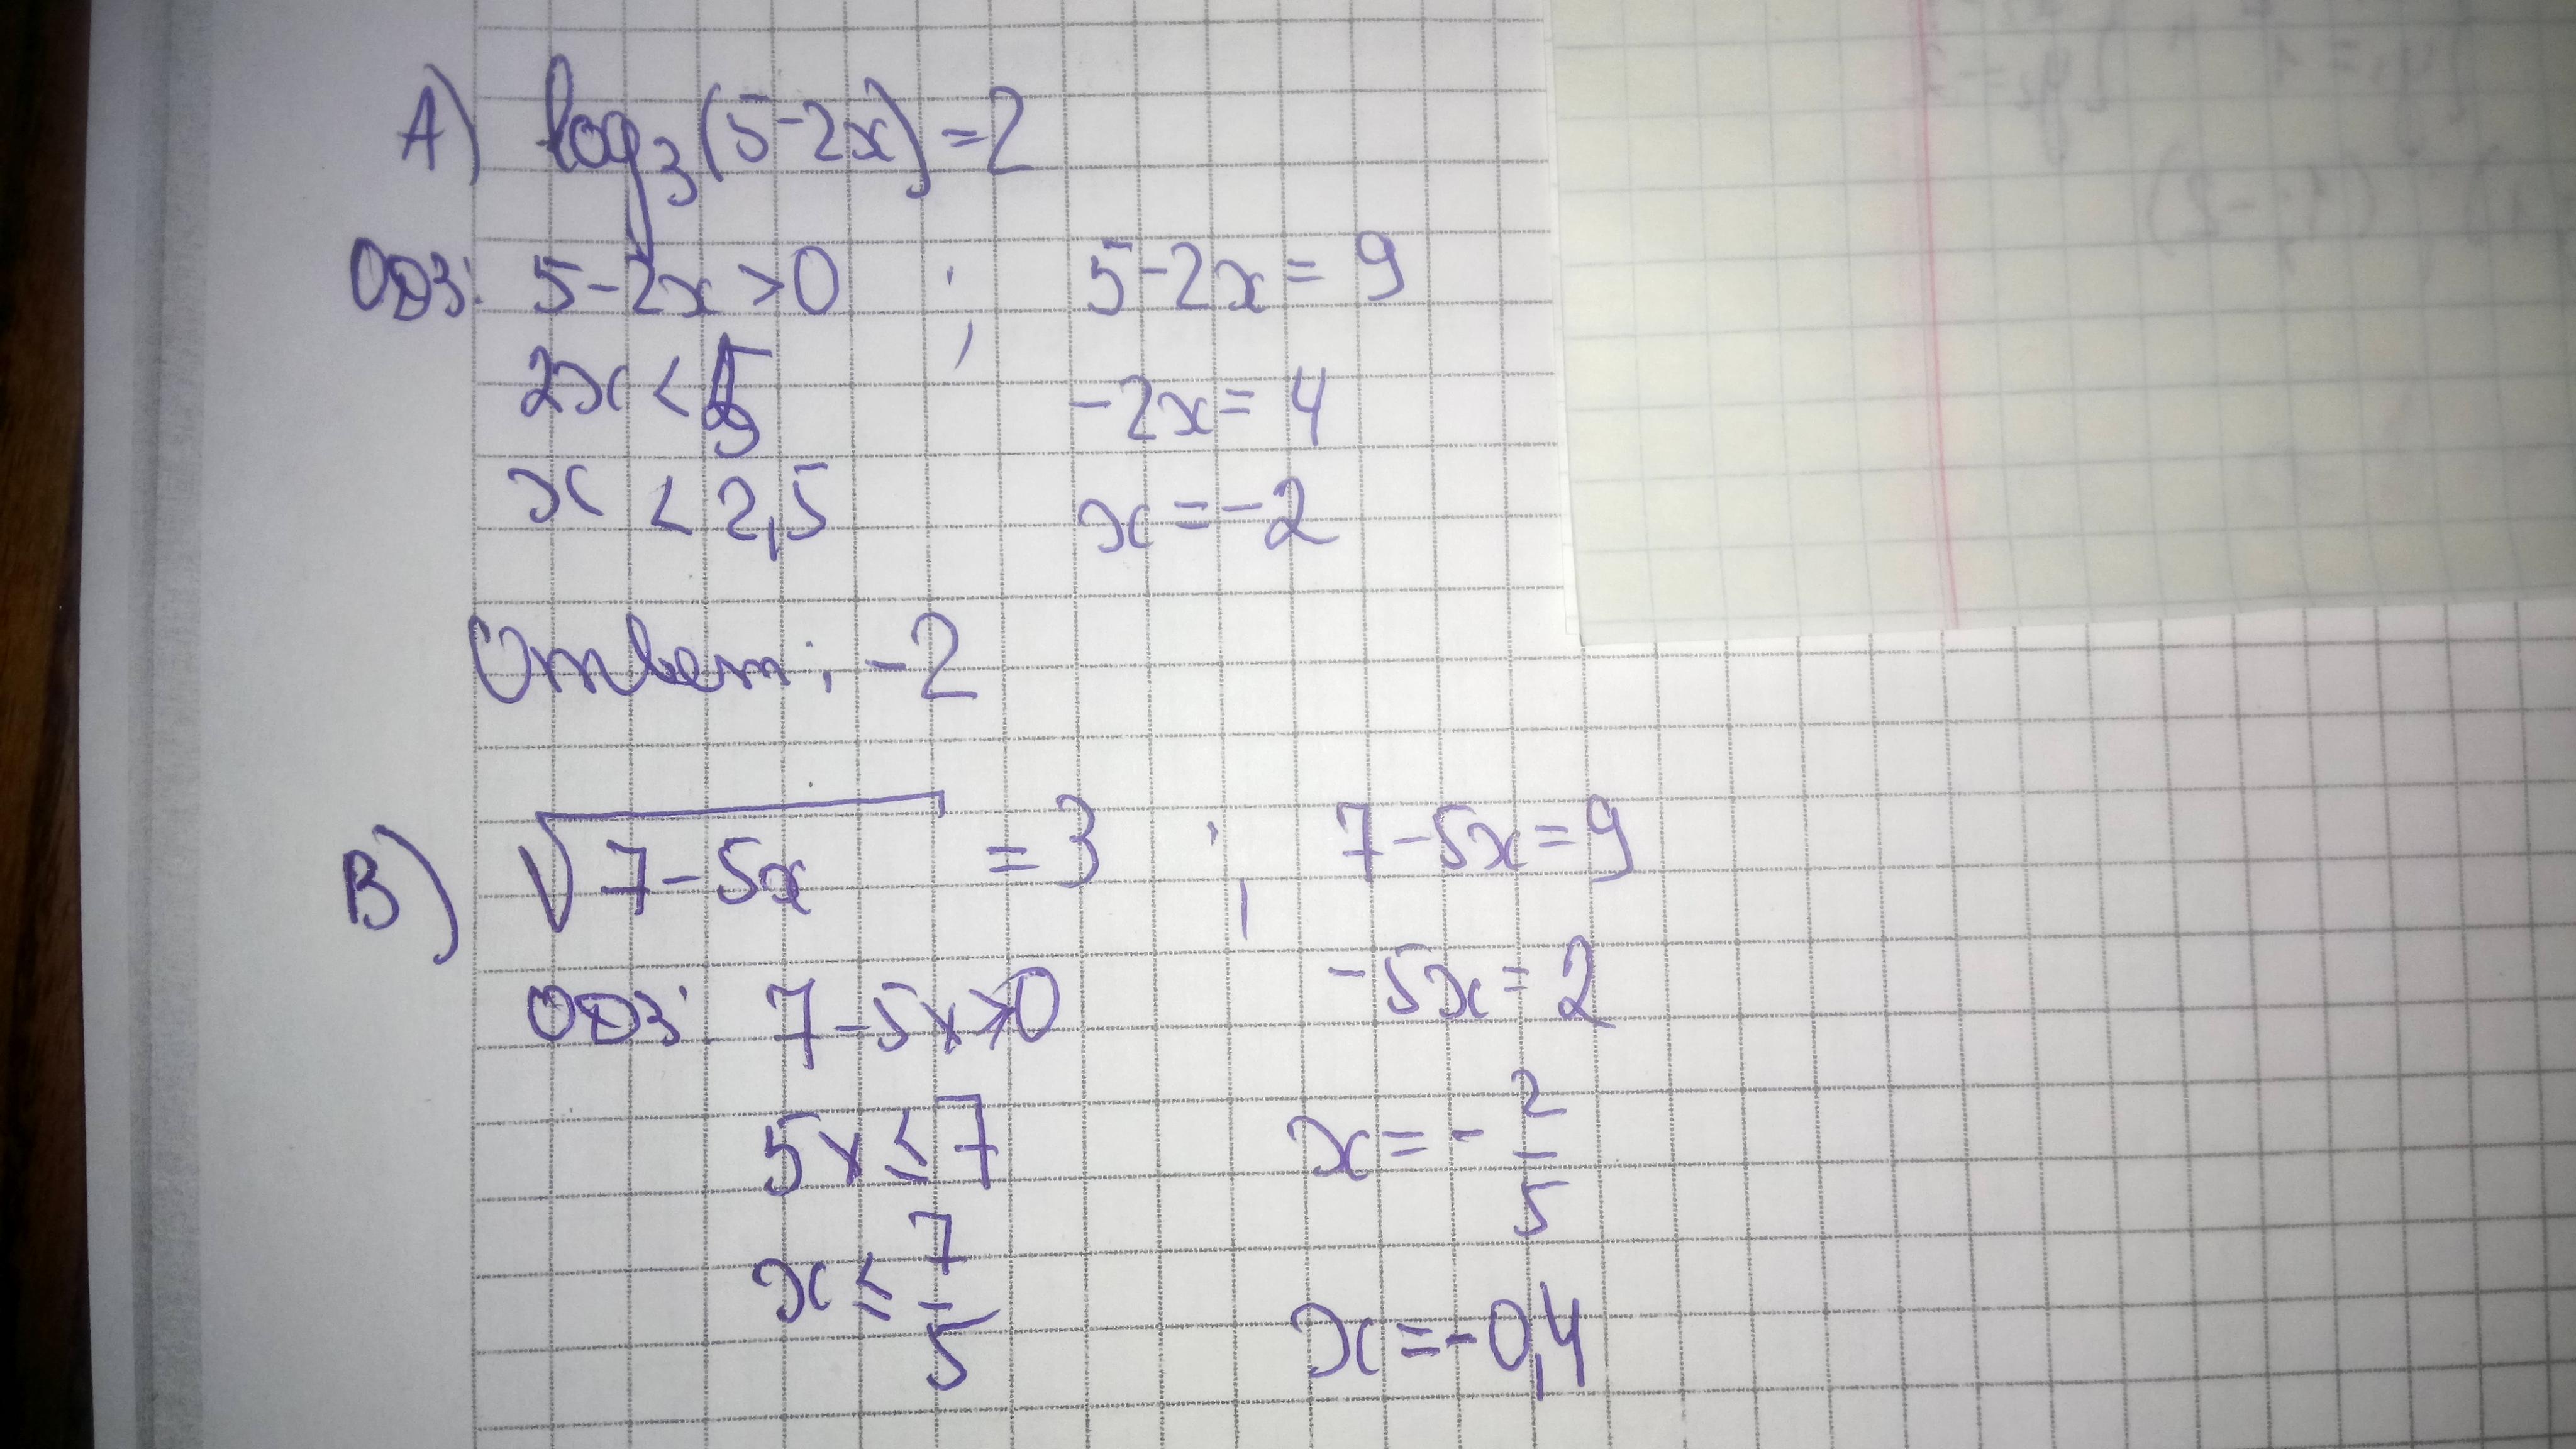 А) log₃(5-2x)=2
ОДЗ: 5-2x>0 ; 5-2x=9
2x<5 -2x=4
x<2,5 x=-2
Ответ: -2
В) √(7-5x) =3 ; 7-5x=9
ОДЗ: 7-5x≥0 -5x=2
5x≤7 x=-2/5
x≤7/5 x=-0,4